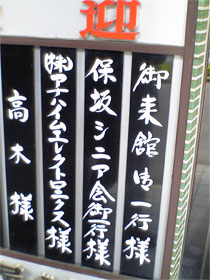 迎
御来館御一行様
保坂シニア会御行様
(株) エレクトロニクス様
高木様